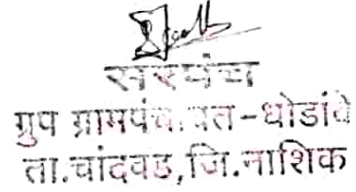 सरपंच
ग्रुप ग्रामपंचायत-धोडांबे
ता.चांदवड,जि.नाशिक